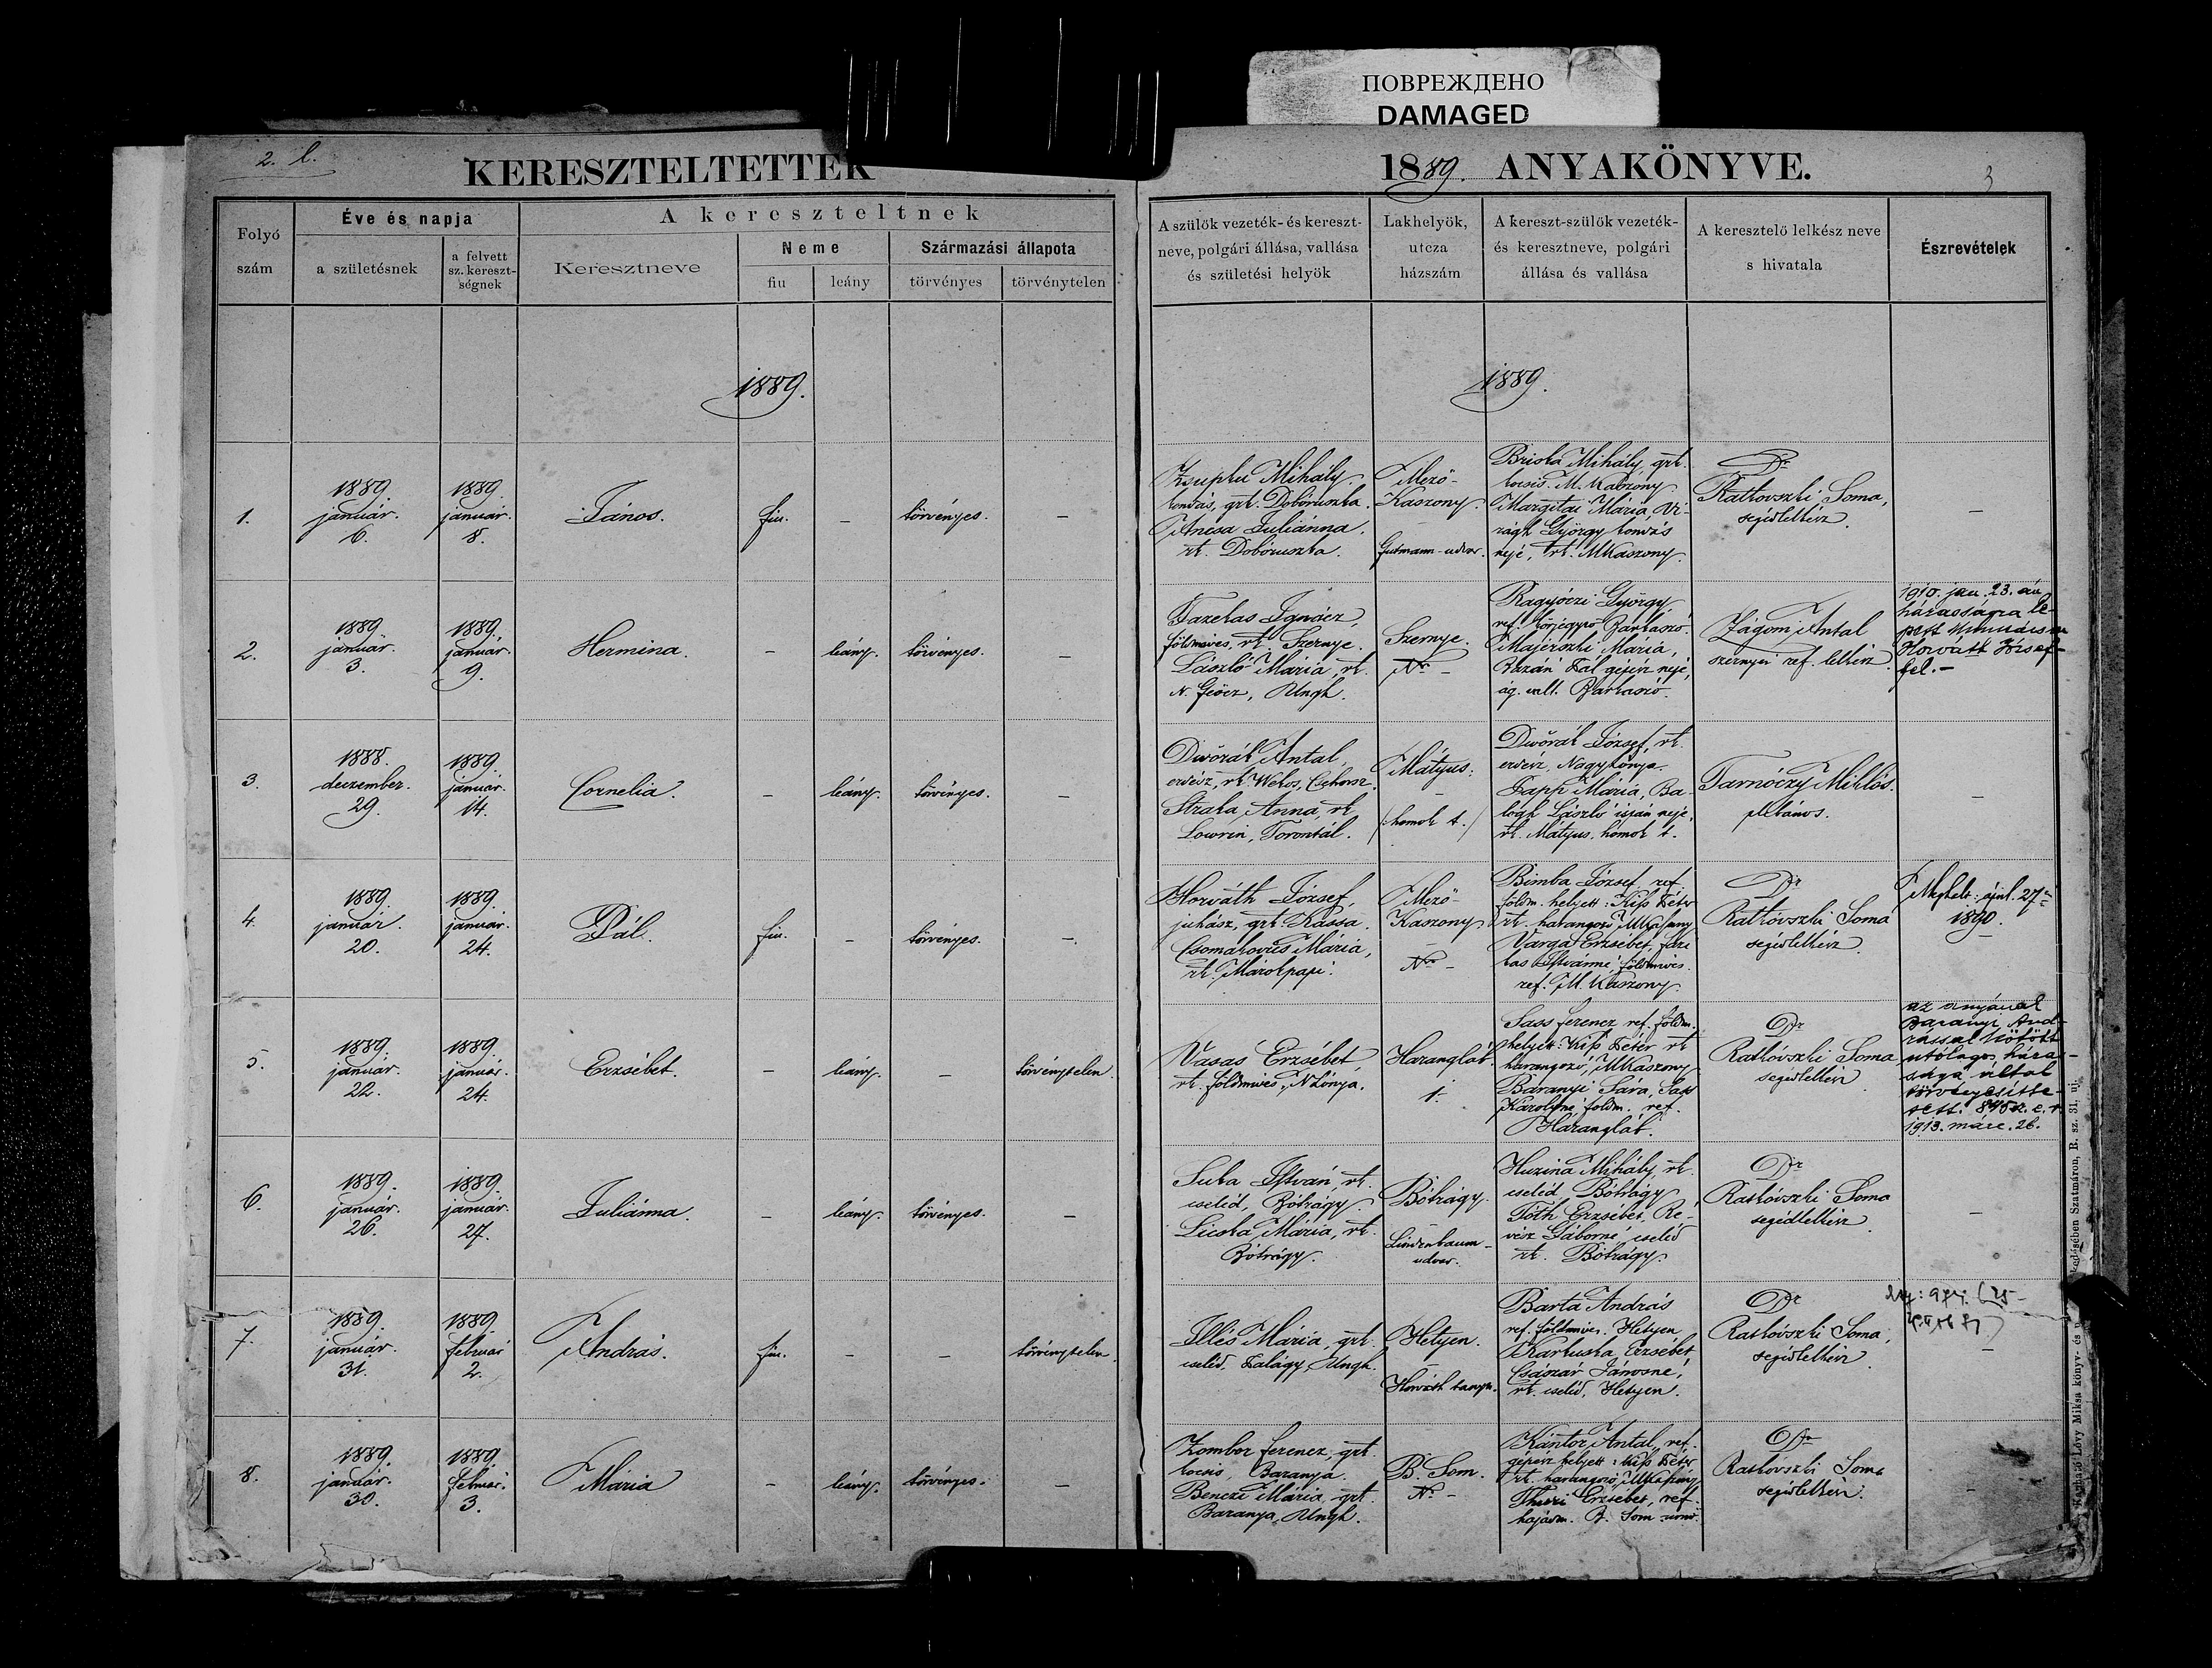 ПОВРЕЖДЕНО
DAMAGED
2. l.
KERESZTELTETTEK
1889. ANYAKÖNYVE.
3
Folyó
szám
Éve és napja
a születésnek
a felvett
sz. kereszt-
ségnek
A kereszteltnek
Keresztneve
Neme
fiu
leány
Származási állapota
törvényes
törvénytelen
A szülők vezeték- és kereszt-
neve, polgári állása, vallása
és születési helyök
Lakhelyök,
utcza
házszám
A kereszt-szülők vezeték-
és keresztneve, polgári
állása és vallása
A keresztelő lelkész neve
s hivatala
Észrevételek
1889.
1889.
1.
1889.
január.
6.
1889.
január.
8.
János.
fiu.
–
törvényes.
–
Mihály.
kondás, grk. Dobóruszka.
Ancsa Juliánna,
rk. Dobóruszka.
Mező-
Kaszony.
Gutmann-udvar.
Briska Mihály, grk.
kocsis. M. Kaszony.
Margitai Mária, Vi-
rágh György kondás
nejé, rk. MKaszony.
Dr
Ratkovszki Soma,
segédlelkész.
–
2.
1889.
január.
3.
1889.
január.
9.
Hermina.
–
leány.
törvényes.
–
Fazekas Ignácz,
földmíves, rk. Szernye.
László Mária, rk.
N. Geöcz, Ungh.
Szernye.
Nr –
Ragyóczi György,
ref. körjegyző Barkaszó.
Majerszki Mária,
Pál gépész nejé,
ág. vall. Barkaszó.
Zágoni Antal
szernyei ref. lelkész.
1910. jan. 23. án
házasságra lé-
pett Munkácson
Horváth József-
fel. –
3.
1888.
deczember.
29.
1889.
január.
14.
Cornelia.
–
leány.
törvényes.
–
Dwořák Antal,
erdész, rk. Wekos,
Straka Anna, rk.
Lowrin, Torontál.
Mátyus.
–
/:homok t./
Dwořák József, rk.
erdész, Nagykónya.
Papp Mária, Ba-
logh László ispán nejé,
rk. Mátyus, homok t.
Tarnóczy Miklós.
plébános.
–
4.
1889.
január.
20.
1889.
január.
24.
Pál.
fiu.
–
törvényes.
–
Horváth József,
juhász, grk. Kassa.
Csomakovics Mária,
rk. Márokpapi.
Mező-
Kaszony.
–
Nr –
Bimba József ref.
földm. helyett: Kiss Péter
rk. harangozó MKaszony
Varga Erzsébet, Faze
kas Istvánné földmíves.
ref. M. Kaszony.
Dr
Ratkóvszki Soma
segédlelkész.
Meghalt: ápril. 27én
1890.
5.
1889.
január.
22.
1889.
január.
24.
Erzsébet.
–
leány.
–
törvénytelen.
Vasas Erzsébet
rk. földmíves, N.Lónya.
Harangláb.
1.
Sass ferencz ref. földm.
helyett: Kiss Péter rk.
harangozó, MKaszony.
Baranyi Sára, Sass
Károlyné földm. ref.
Harangláb.
Dr
Ratkóvszki Soma
segédlelkész.
az anyának
Baranyi And-
rással kötött
utólagos háza-
sága által
törvényesitte-
tett.
1913. márc. 26.
6.
1889.
január.
26.
1889.
január.
27.
Juliánna.
–
leány.
törvényes.
–
Suba István, rk.
cseléd, Bótrágy.
Licska Mária, rk.
Bótrágy.
Bótrágy.
–
udvar.
Huzina Mihály, rk.
cseléd, Bótrágy
Tóth Erzsébet, Ré-
vész Gáborné, cseléd
rk. Bótrágy.
Dr
Ratkóvszki Soma
segédlelkész
–
7.
1889.
január.
31.
1889.
február
2.
András.
fiu.
–
–
törvénytelen.
Illés Mária, grk.
cseléd. Palágy, Ungh.
Hetyen.
–
Horváth tanya.
Barta András
ref. földmíves. Hetyen
Kartuska Erzsébet
Császár Jánosné,
rk. cseléd, Hetyen.
Dr
Ratkóvszki Soma,
segédlelkész.
–
8.
1889.
január.
30.
1889.
február.
3.
Mária
–
leány.
törvényes.
–
Zombor ferencz, grk.
kocsis, Baranya.
Benczi Mária, grk.
Baranya, Ungh.
B. Som.
Nr –
Kántor Antal, ref.
gépész helyett: Kiss Péter
rk. harangozó, MKaszony
Thuri Erzsébet, ref.
hajadon. B. Som
Dr
Ratkóvszki Soma
segédlelkész.
–
Lővy Miksa könyv- és
Szatmáron, R. sz. 31. uj.